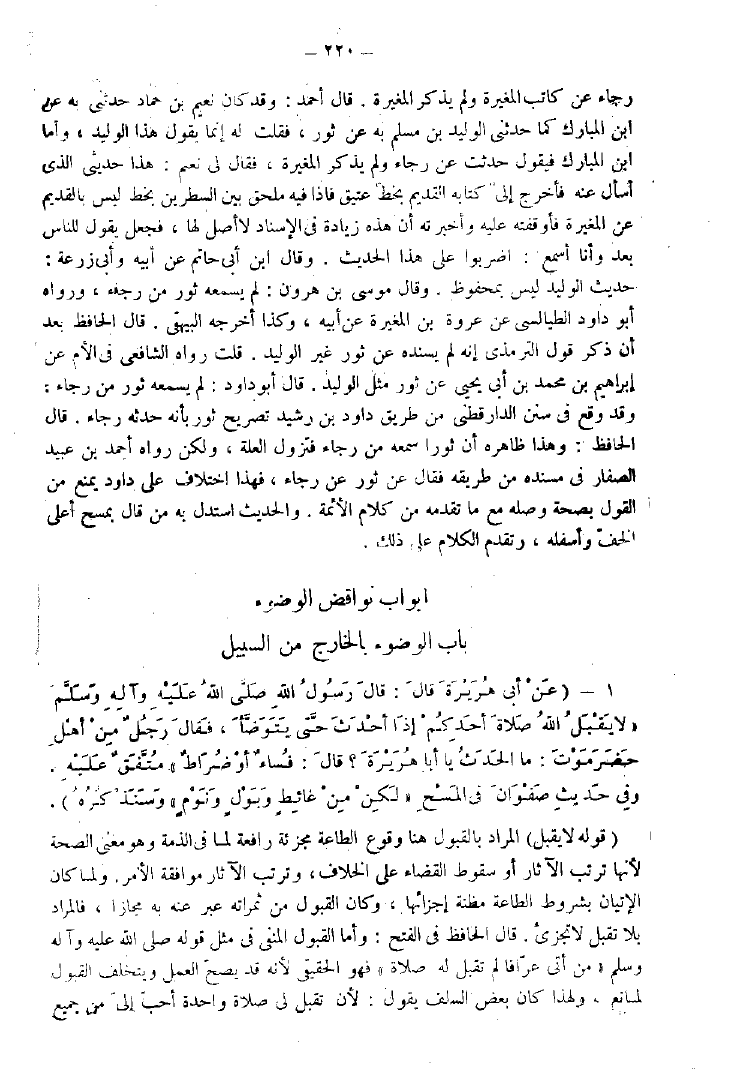 – ٢٢٠ –
رجاء عن كاتب المغيرة ولم يذكر المغيرة . قال أحمد : وقد كان نعيم بن حماد حدثني به عن
ابن المبارك كما حدثنى الوليد بن مسلم به عن ثور ، فقلت له إنما يقول هذا الوليد ، وأما
ابن المبارك فيقول حدثت عن رجاء ولم يذكر المغيرة ، فقال لى نعيم : هذا حديثى الذى
أسأل عنه فأخرج إلىّ كتابه القديم بخطّ عتيق فاذا فيه ملحق بين السطرين بخط ليس بالقديم
عن المغيرة فأوقفته عليه وأخبرته أن هذه زيادة فى الإسناد لاأصل لها ، فجعل يقول للناس
بعد وأنا أسمع : اضربوا على هذا الحديث . وقال ابن أبى حاتم عن أبيه وأبى زرعة :
حديث الوليد ليس بمحفوظ . وقال موسى بن هرون : لم يسمعه ثور من رجاء ، ورواه
أبو داود الطيالسى عن عروة بن المغيرة عن أبيه ، وكذا أخرجه البيهقى . قال الحافظ بعد
أن ذكر قول الترمذى إنه لم يسنده عن ثور غير الوليد . قلت رواه الشافعى فى الأم عن
إبراهيم بن محمد بن أبى يحيى عن ثور مثل الوليد . قال أبوداود : لم يسمعه ثور من رجاء :
وقد وقع فى سنن الدارقطنى من طريق داود بن رشيد تصريح ثور بأنه حدثه رجاء . قال
الحافظ : وهذا ظاهره أن ثورا سمعه من رجاء فتزول العلة ، ولكن رواه أحمد بن عبيد
الصفار فى مسنده من طريقه فقال عن ثور عن رجاء ، فهذا اختلاف على داود يمنع من
القول بصحة وصله مع ما تقدمه من كلام الأئمة . والحديث استدل به من قال بمسح أعلى
الخفّ وأسفله ، وتقدم الكلام على ذلك .
ابواب نواقض الوضوء
باب الوضوء بالخارج من السبيل
١ – ( عَنْ أبى هُرَيْرَةَ قالَ : قالَ رَسُولُ اللهِ صَلَّى اللهُ عَلَيْهِ وآلِهِ وَسَلَّمَ
« لايَقْبَلُ اللهُ صَلاةَ أحَدِكُمْ إذَا أحْدَثَ حَتَّى يَتَوَضَّأَ ، فَقالَ رَجُلٌ مِنْ أهْلِ
حَضْرَمَوْتَ : ما الحَدَثُ يا أبا هُرَيْرَةَ ؟ قالَ : فُساءٌ أوْ ضُرَاطٌ » مُتَّفَقٌ عَلَيْهِ .
وفى حَديثِ صَفْوَانَ فى المَسْحِ « لَكِنْ مِنْ غائِطٍ وَبَوْلٍ وَنَوْمٍ » وَسَنَذْكُرُهُ ) .
( قوله لايقبل ) المراد بالقبول هنا وقوع الطاعة مجزئة رافعة لما فى الذمة وهو معنى الصحة
لأنها ترتب الآثار أو سقوط القضاء على الخلاف ، وترتب الآثار موافقة الأمر . ولما كان
الإتيان بشروط الطاعة مظنة إجزائها ، وكان القبول من ثمراته عبر عنه به مجازا ، فالمراد
بلا تقبل لاتجزئ . قال الحافظ فى الفتح : وأما القبول المنفى فى مثل قوله صلى الله عليه وآله
وسلم « من أتى عرّافا لم تقبل له صلاة » فهو الحقيقى لأنه قد يصحّ العمل ويتخلف القبول
لمانع ، ولهذا كان بعض السلف يقول : لأن تقبل لى صلاة واحدة أحبّ إلىّ من جميع